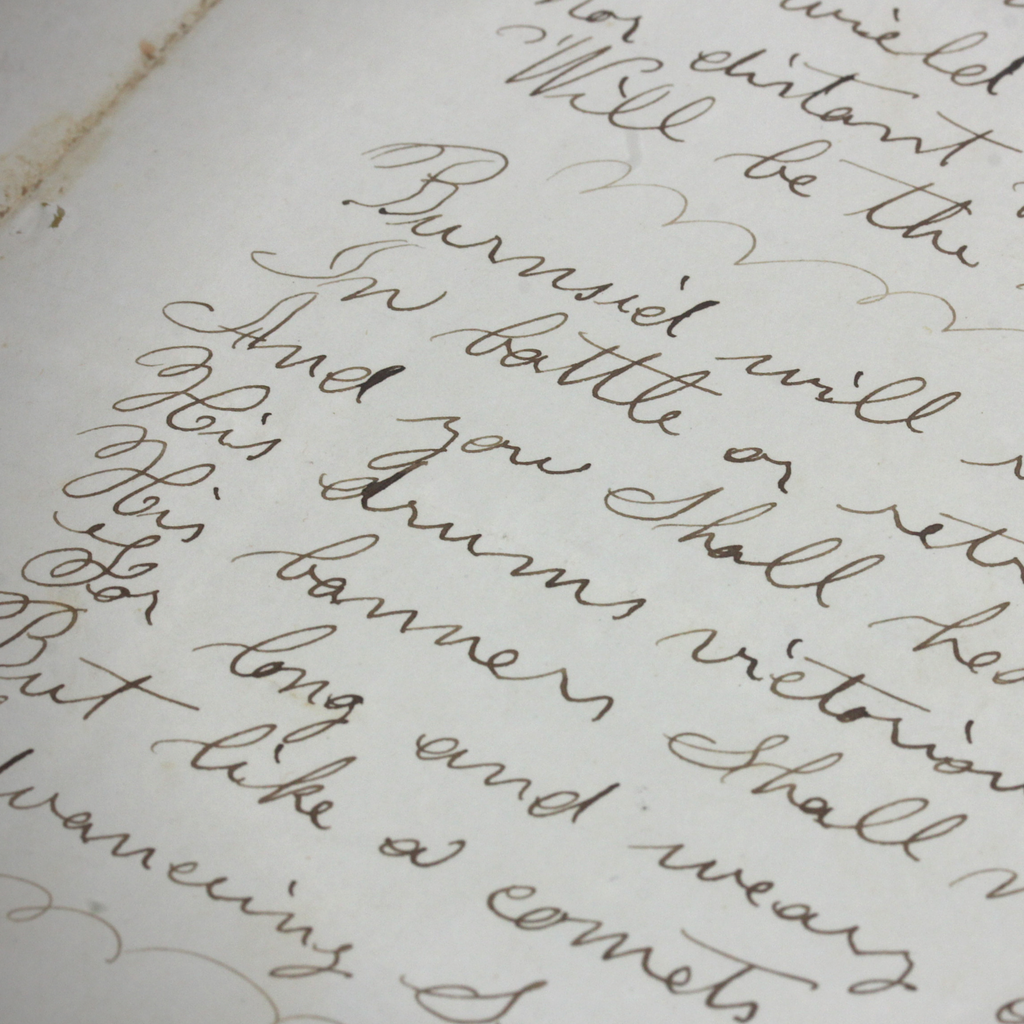 wield
Nor distant
Will be the
Burnsied will
In battle or retr
And you Shall hea
His drums victorio
His banners Shall
For long and weary
But like a comets
dvancing S